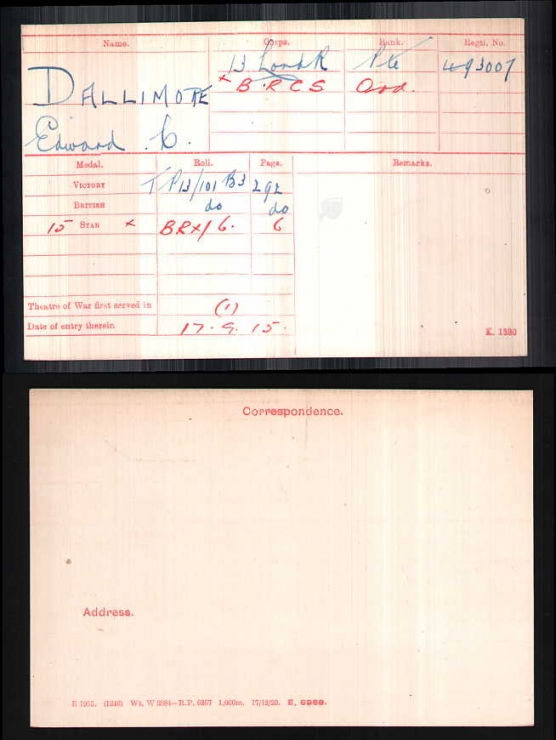 Name. Corps. Rank. Regtl. No.
13 Lond R Pte 493007
DALLIMORE x B.R.C.S Ord.
Edward .C.
Medal. Roll. Page. Remarks.
VICTORY TP13/101 B3 292
BRITISH do do
15 STAR x BRx/6. 6
Theatre of War first served in (1)
Date of entry therein 17.9.15.
K. 1380
Correspondence.
Address.
1,000m. 17/12/20. E, 6969.